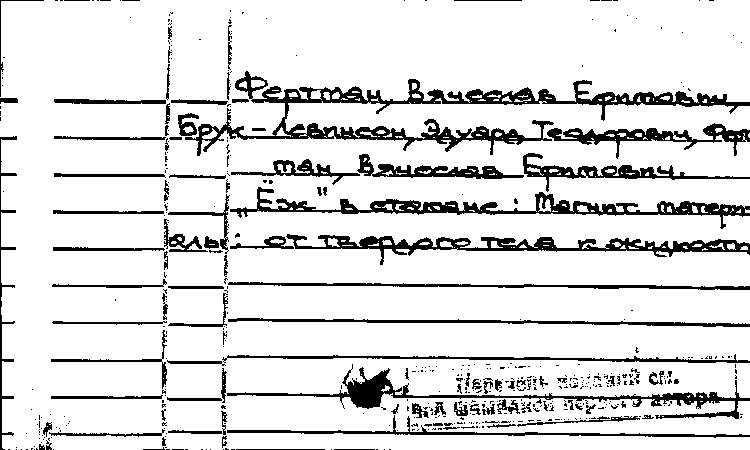 Фертман, Вячеслав Ефимович,
Брук-Левинсон, Эдуард Теодорович, Ферт
ман, Вячеслав Ефимович.
„Ёж" в стакане: Магнит. матери
алы: от твердого тела к жидкости
Перечень изданий см.
под фамилией первого автора